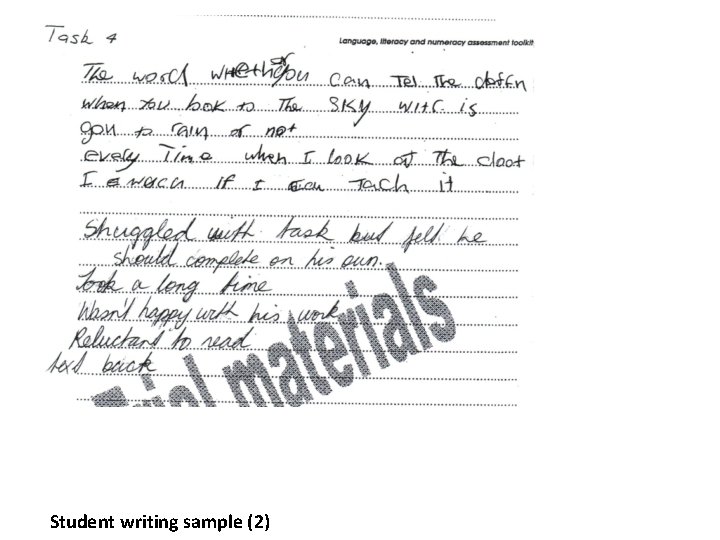 Task 4
Language, literacy and numeracy assessment toolkit
The word whether you can Tel The
when you look to The SKY is
gou to rain or not
every Time when I look at The cloot
I if I can Tach it
Struggled with task but felt he
should complete on his own.
Took a long time
Wasn't happy with his work
Reluctant to read
text back
Trial materials
Student writing sample (2)